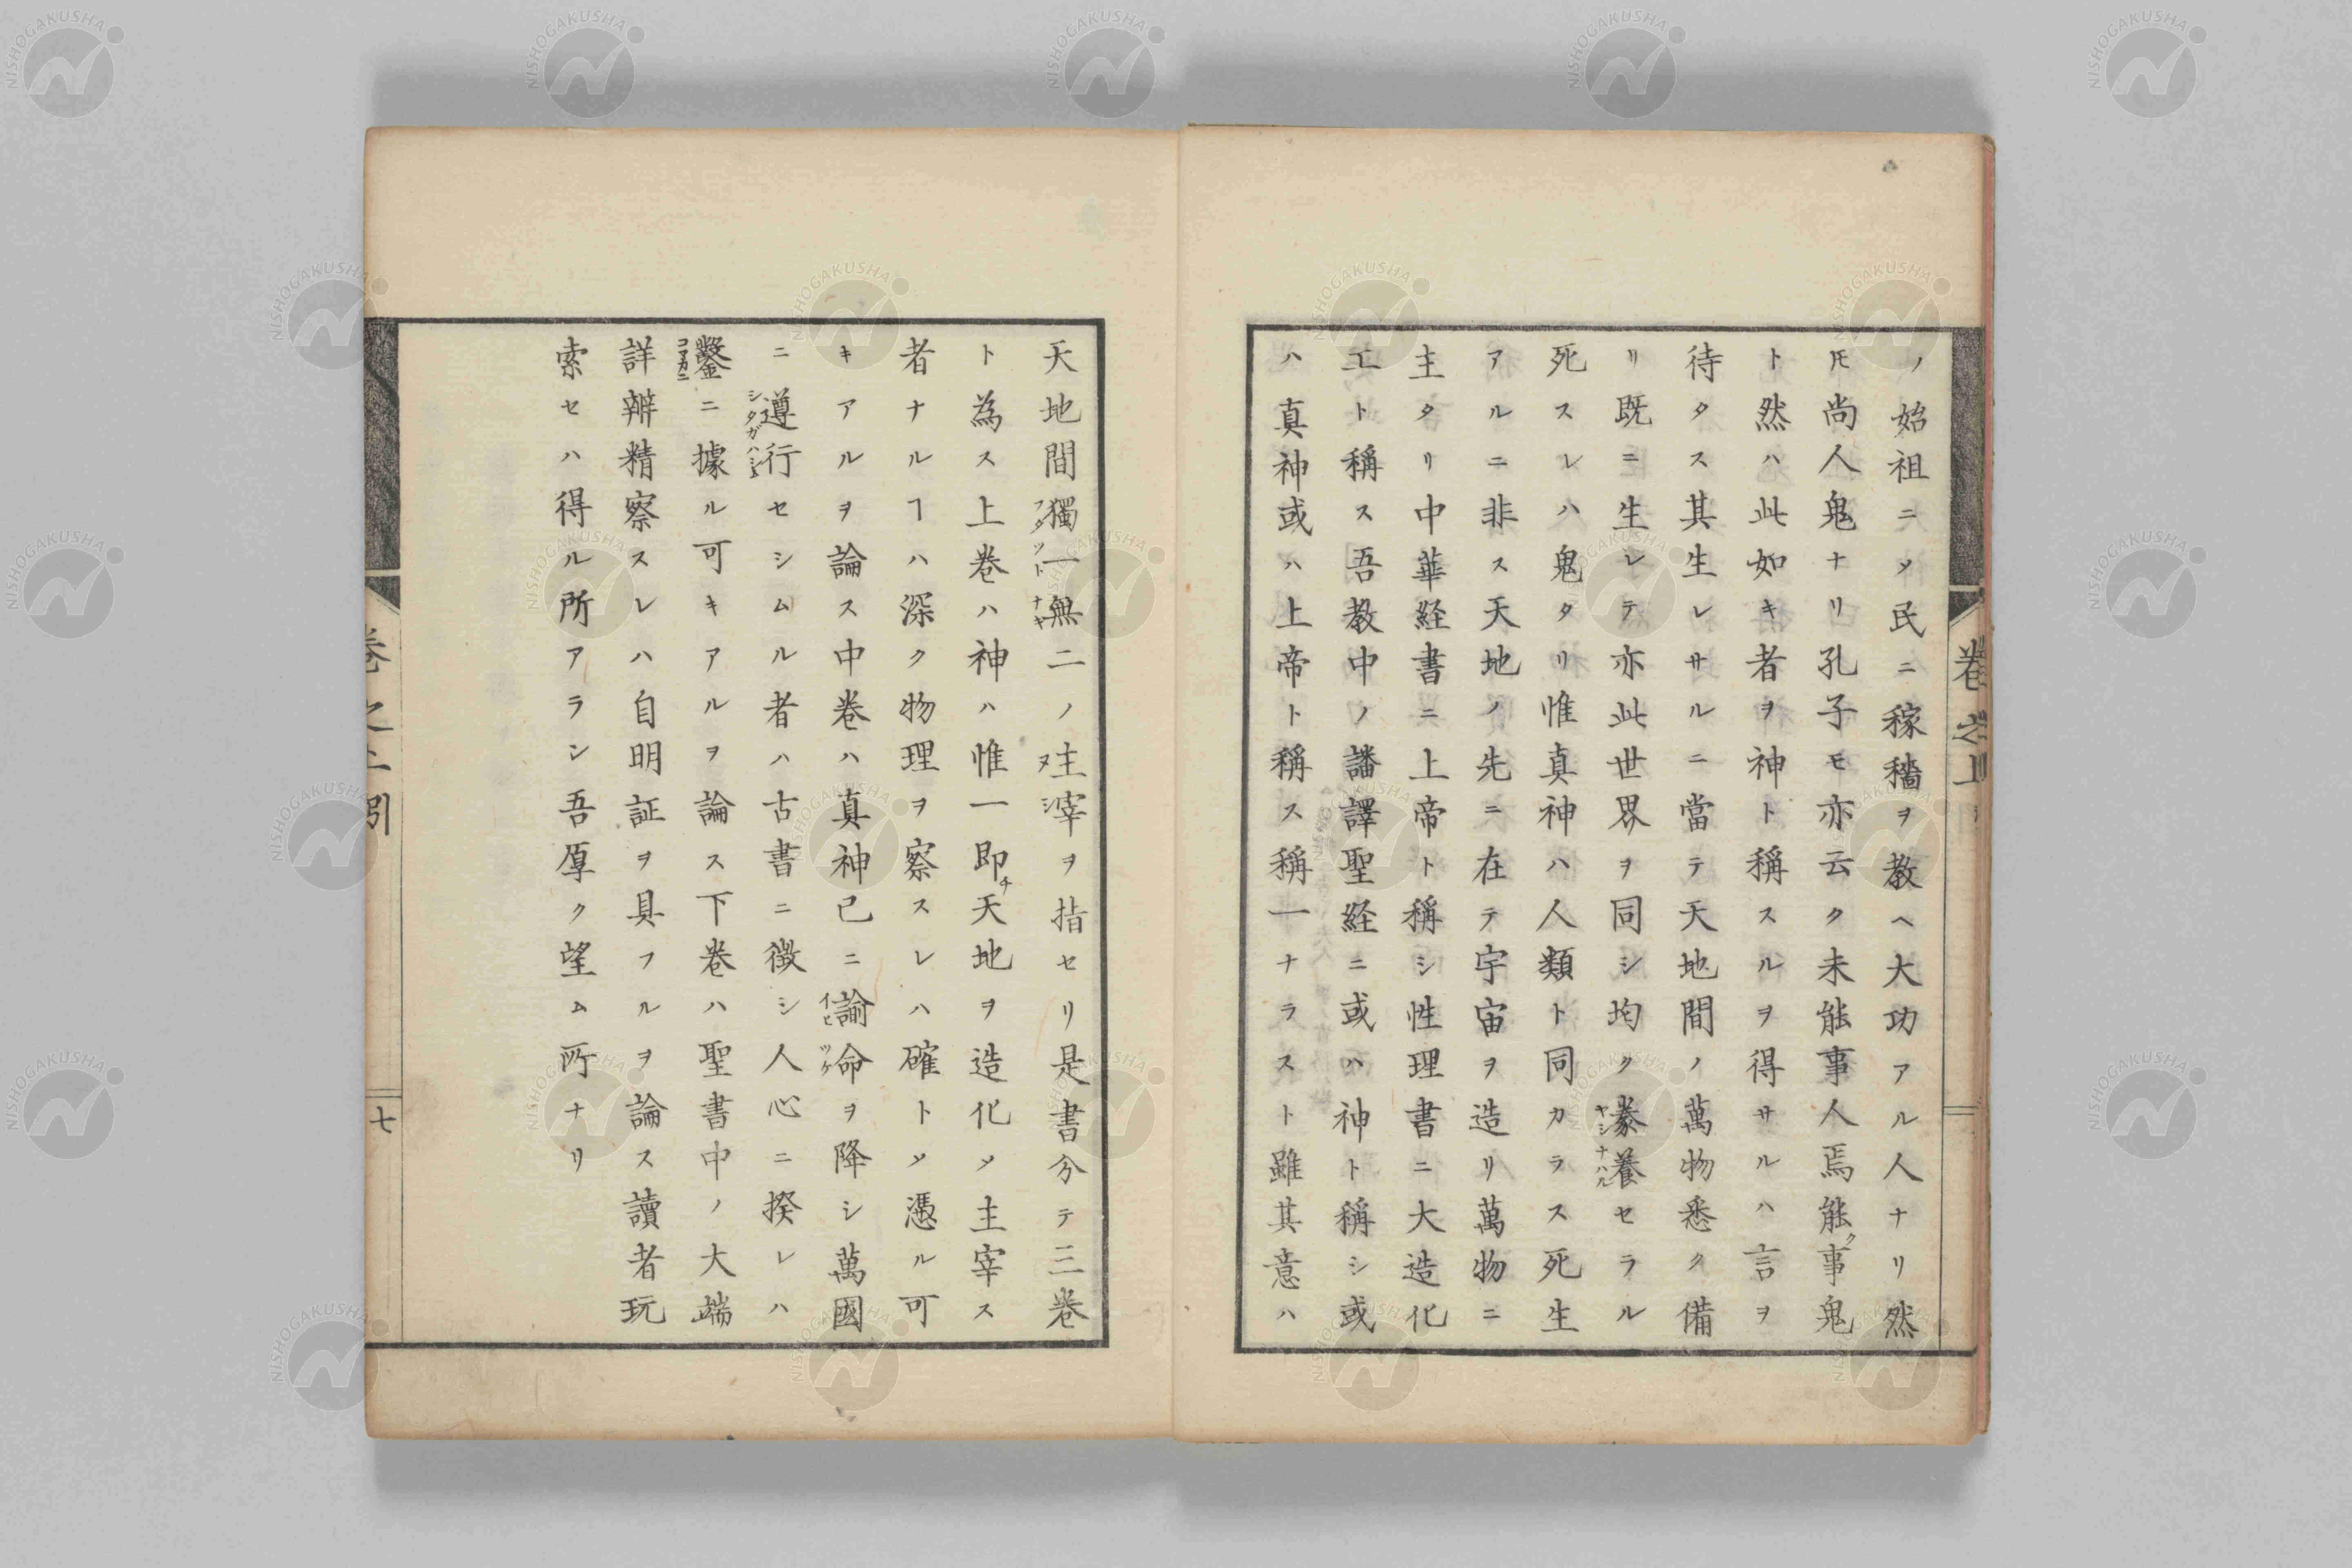 ノ始祖ニメ民ニ稼穡ヲ教ヘ大功アル人ナリ然
𪜈尚人鬼ナリ孔子モ亦云ク未能事人焉能ク事鬼
ト然ハ此如キ者ヲ神ト稱スルヲ得サルハ言ヲ
待タス其生レサルニ當テ天地間ノ萬物悉ク備
リ既ニ生レテ亦此世界ヲ同シ均ク豢養セラル
ヤシナハル
死スレハ鬼タリ惟真神ハ人類ト同カラス死生
アルニ非ス天地ノ先ニ在テ宇宙ヲ造リ萬物ニ
主タリ中華経書ニ上帝ト稱シ性理書ニ大造化
工ト稱ス吾教中ノ譒譯聖経ニ或ハ神ト稱シ或
ハ真神或ハ上帝ト稱ス稱一ナラスト雖其意ハ
卷之上
天地間獨一無二ノ主宰ヲ指セリ是書分テ三卷
フタツトナキ
ヌシ
ト為ス上卷ハ神ハ惟一即チ天地ヲ造化メ主宰ス
者ナルヿハ深ク物理ヲ察スレハ確トメ憑ル可
キアルヲ論ス中卷ハ真神已ニ諭命ヲ降シ萬國
イヒツケ
ニ遵行セシムル者ハ古書ニ徴シ人心ニ揆レハ
シタガハシメ
鑿ニ據ル可キアルヲ論ス下卷ハ聖書中ノ大端
コマカニ
詳辨精察スレハ自明証ヲ具フルヲ論ス讀者玩
索セハ得ル所アラン吾厚ク望ム所ナリ
卷之上引
七
NISHOGAKUSHA